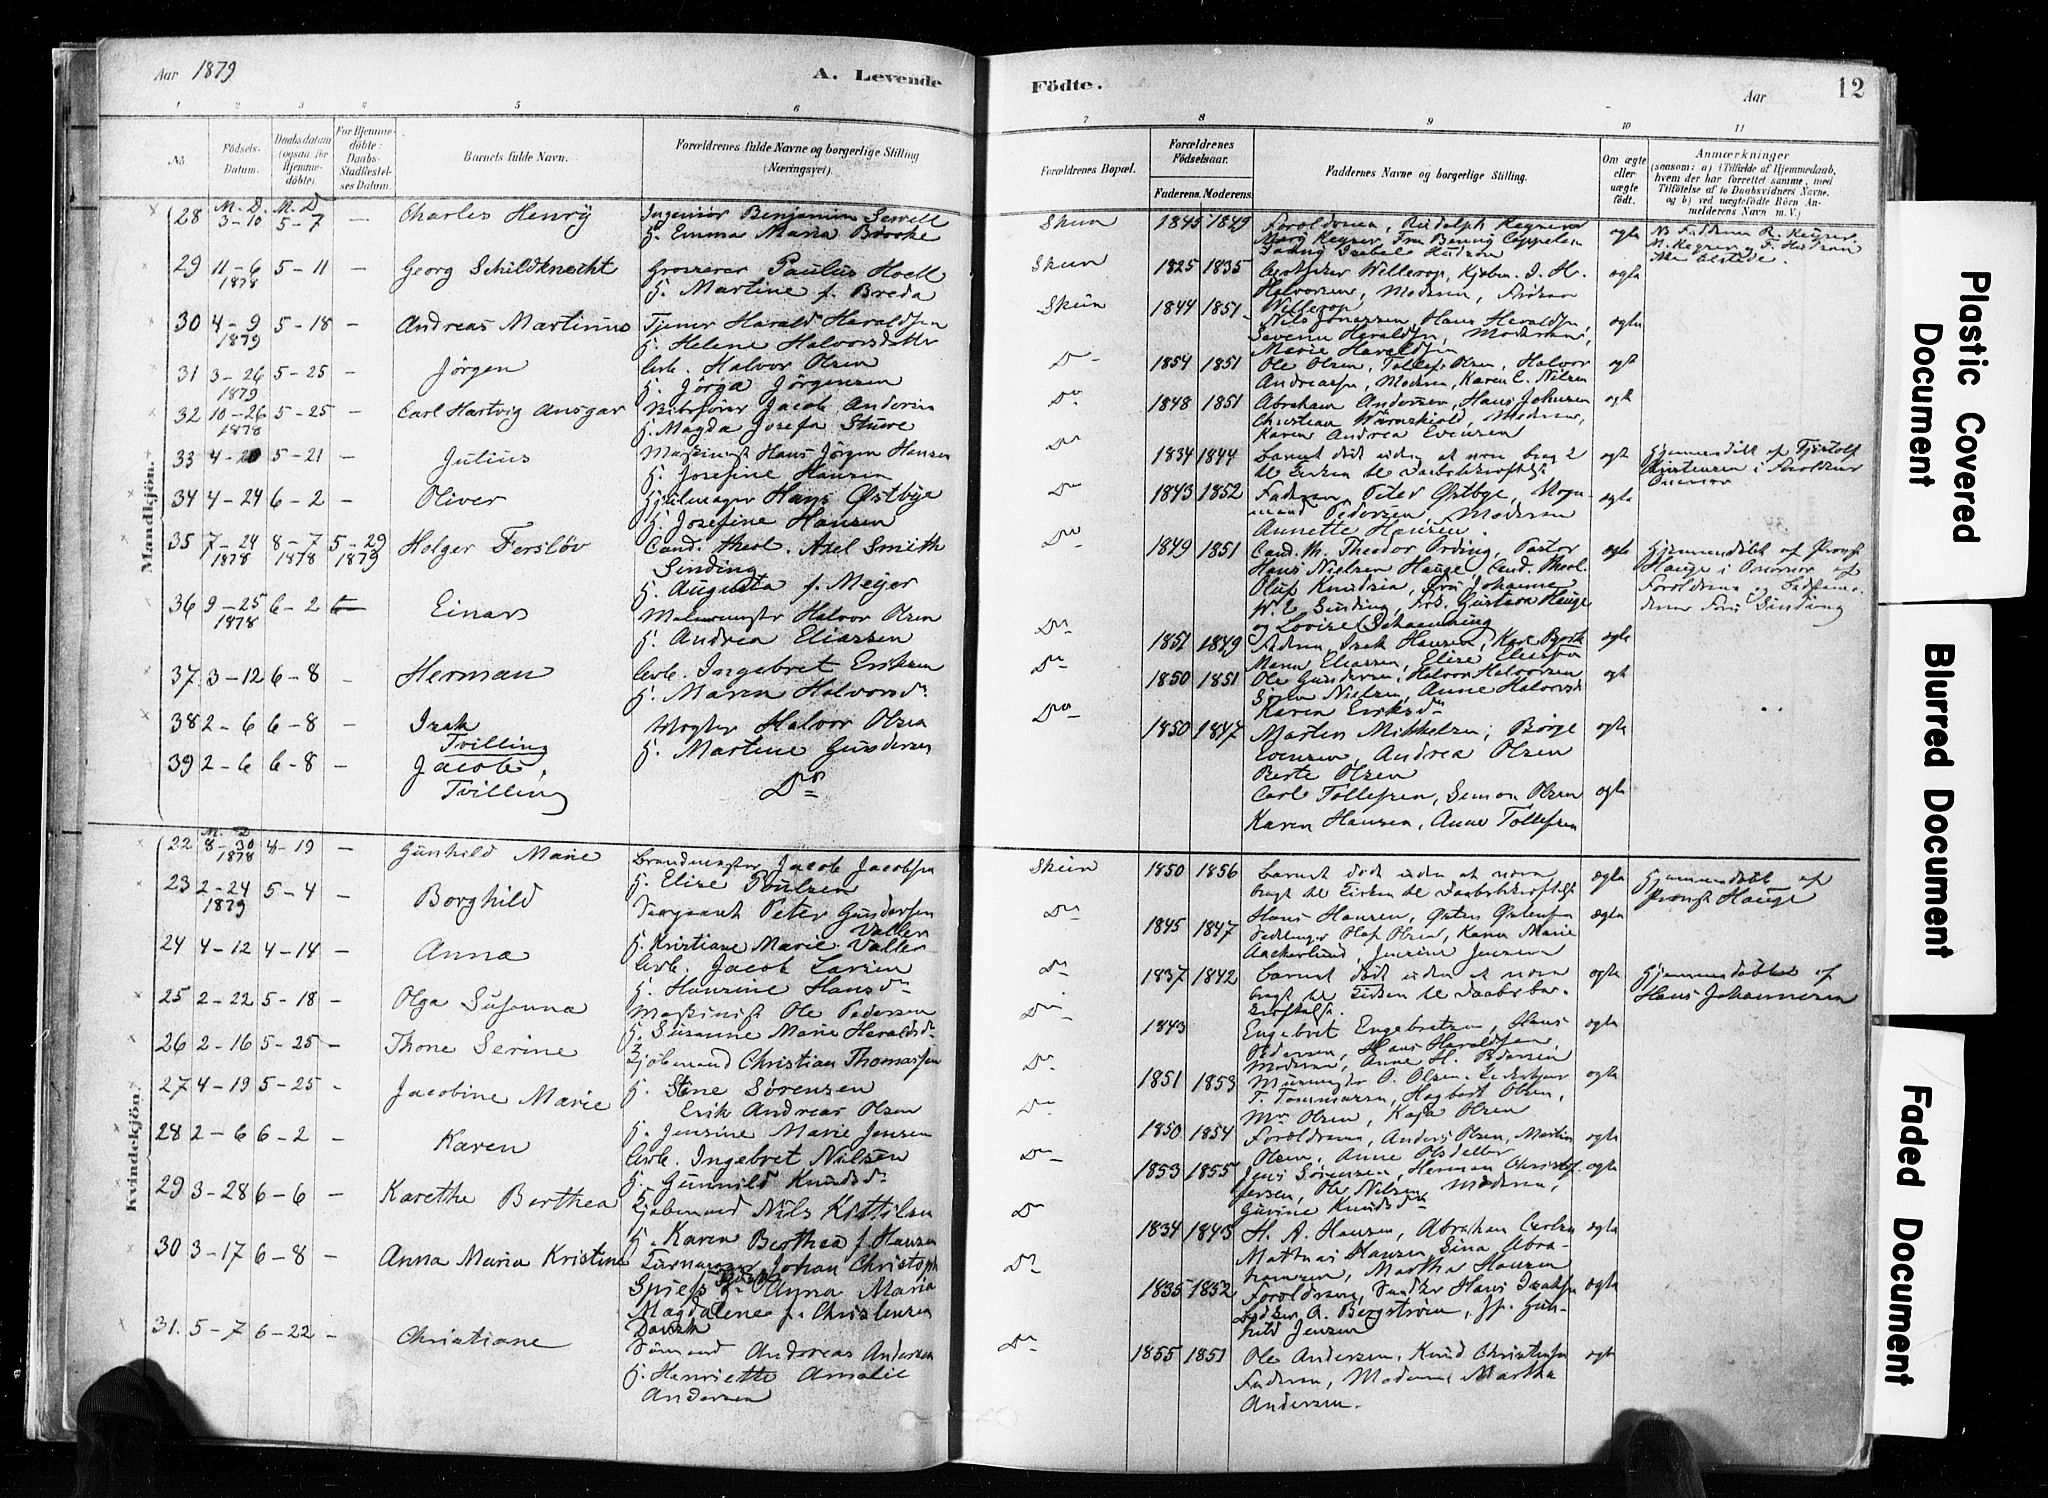 Aar 1879
A. Levende
Födte.
Aar
12
1 2 3 4 5 6 7 8 9 10 11
No
Födsels-
Datum.
Daabsdatum
(ogsaa: for
Hjemme-
döbte).
For Hjemme-
döbte:
Daabs-
Stadfæstel-
ses Datum.
Barnets fulde Navn.
Forældrenes fulde Navne og borgerlige Stilling
(Næringsvei).
Forældrenes Bopæl.
Forældrenes
Födselsaar.
Faderens. Moderens.
Faddernes Navne og borgerlige Stilling.
Om ægte
eller
uægte
födt.
Anmærkninger
(saasom: a) i Tilfælde af Hjemmedaab,
hvem der har forrettet samme, med
Tilföielse af to Daabsvidners Navne.
og b) ved uægtefödte Börn An-
melderens Navn m. V.)
Mandkjön.
M. D. M. D
28 3-10 5-7 — Charles Henry
Ingeniör Benjamin Sewell
H. Emma Maria Brooke
Skien 1845 1849
Forældrene, Rudolph Keyser
ægte
29 11-6 5-11 — Georg Schildknecht
1878
Grosserer Paulus Hoell
H. Martine f. Breda
Skien 1825 1835
Halvorsen, Moderen,
ægte
30 4-9 5-18 — Andreas Martinius
1879
Tjener Harald Haraldsen
H. Helene Halvorsdatter
Skien 1844 1851
Nils Jonassen, Hans Heraldsen,
Severin Heraldsen, Moderen,
Marie Haraldsen
ægte
31 3-26 5-25 — Jörgen
1879
Arb. Halvor Olsen
H. Jörga Jörgensen
Do 1854 1851
Ole Olsen, Tollef Olsen, Halvor
Andreassen, Moderen, Karen E. Nilsen
ægt
32 10-26 5-25 — Carl Hartvig Ansgar
1878
Jacob Andersen
H. Magda Josefa Stüwe
Do 1848 1851
Abraham Andersen, Hans Johnsen
Christian Wärnskiold, Moderen,
Karen Andrea Evensen
ægte
33 4-20 5-21 — Julius
Maskinist Hans Jörgen Hansen
H. Josefine Hansen
Do 1834 1844
Barnet död uden at være bragt
til Kirken til Daabsbekræftelse
ægt
34 4-24 6-2 — Oliver
Hjulmager Hans Østbye
H. Josefine Hansen
Do 1843 1852
Faderen, Peter Østbye, Mogn-
mand Pedersen, Moderen
Annette Hansen.
ægte
35 7-24 8-7 5-29 Holger Fersløv
1878 1878 1879
Cand. theol. Axel Smith
Sinding
H. Augusta f. Meyer
Do 1849 1851
Cand. th. Theodor Ording, Pastor
Hans Nielsen Hauge, Cand. Theol.
Oluf Knudsen, Fru Johanne
W. E Sinding, Frk. Gustava Hauge
og Lovise Schaanning
ægte
Hjemmedöbt af Provst
Hauge i Nærvær af
Forældrene,
Fru Sinding
36 9-25 6-2 Einar
1878
Malermester Halvor Olsen
H. Andrea Eliassen
Do 1851 1849
Faderen, Isak Hansen, Karl Bjork
Maren Eliassen, Elise Eliassen
ægte
37. 3-12 6-8 — Herman
Arb. Ingebret Eriksen
H. Maren Halvorsdr
Do 1850 1851
Ole Gundersen, Halvor Halvorsen
Sören Nielsen, Anne Halvorsdr
Karen Eriksdr
ægt
38 2-6 6-8 — Isak
Tvilling
Vogter Halvor Olsen
H. Martine Gundersen
Do 1850 1847
Martin Mikkelsen, Börge
Evensen, Andrea Olsen
Berte Olsen
ægte
39 2-6 6-8 — Jacob,
Tvilling
Do
Carl Tollefsen, Simon Olsen
Karen Hansen, Anne Tollefsen
ægte
Kvindekjön.
M. D
22 8-30 4-19 — Gunhild Marie
1878
Brandmester Jacob Jacobsen
H. Elise Poulsen
Skien 1850 1856
Barnet död uden at være
bragt til Kirken til Daabsbekræftelse
ægte
Hjemmedöbt af
Provst Hauge
23 2-24 5-4 — Borghild
1879
Sergeant Peter Gundersen
Valler
H. Kristiane Marie Valler
Do 1845 1847
Hans Hansen, Østen Østensen
Olaf Olsen, Karen Marie
Aackerlund, Jensine Jensen
ægte
24 4-12 4-14 — Anna
Arb. Jacob Larsen
H. Hansine Hansdr
Do 1837 1842
Barnet död uden at være
bragt til Kirken til Daabsbe-
kræftelse.
ægte
Hjemmedöbt af
Hans Johannesen
25 2-22 5-18 — Olga Susanna
Maskinist Ole Pedersen
H. Susanne Marie Heraldsdr
Do 1843
Engebret Engebretsen, Hans
Pedersen, Hans Haraldsen,
Moderen, Anne H. Pedersen
ægte
26 2-16 5-25 — Thone Serine
Kjöbmand Christian Thomassen
H. Stine Sörensen
Do 1851 1853
Murmester O. Olsen,
T. Tommassen, Hagbart Olsen,
Mn Olsen, Kaja Olsen
ægte
27 4-19 5-25 — Jacobine Marie
Erik Andreas Olsen
H. Jensine Marie Jensen
Do 1850 1854
Forældrene, Anders Olsen, Martin
Olsen, Anne Olsdatter
ægte
28 2-6 6-2 — Karen
Arb. Ingebret Nielsen
H. Gunhild Knudsdr
Do 1853 1855
Jens Sörensen, Herman Christof-
fersen, Ole Nilsen, Moderen,
Gurine Knudsdr
ægte
29 3-28 6-6 — Karethe Berthea
Kjöbmand Nils Kittilsen
H. Karen Berthea f. Hansen
Do 1834 1845
H. A. Hansen, Abraham Carlsen
Mathias Hansen, Lina Abra-
hamsen, Martha Hansen
ægte
30 3-17 6-8 — Anna Maria Kristine
Johan Christoph
Spiess H. Anna Maria
Magdalene f. Christensen
Dansk
Do 1835 1852
Forældrene, Hans Isaksen
A. Bergström, Jfr. Gun-
hild Jensen
ægte
31. 5-7 6-22 — Christiane
Sömand Andreas Andersen
H. Henriette Amalie
Andersen
Do 1855 1851
Ole Andersen, Knud Christensen
Faderen, Moderen, Martha
Andersen.
ægte
Plastic Covered
Document
Blurred Document
Faded Document